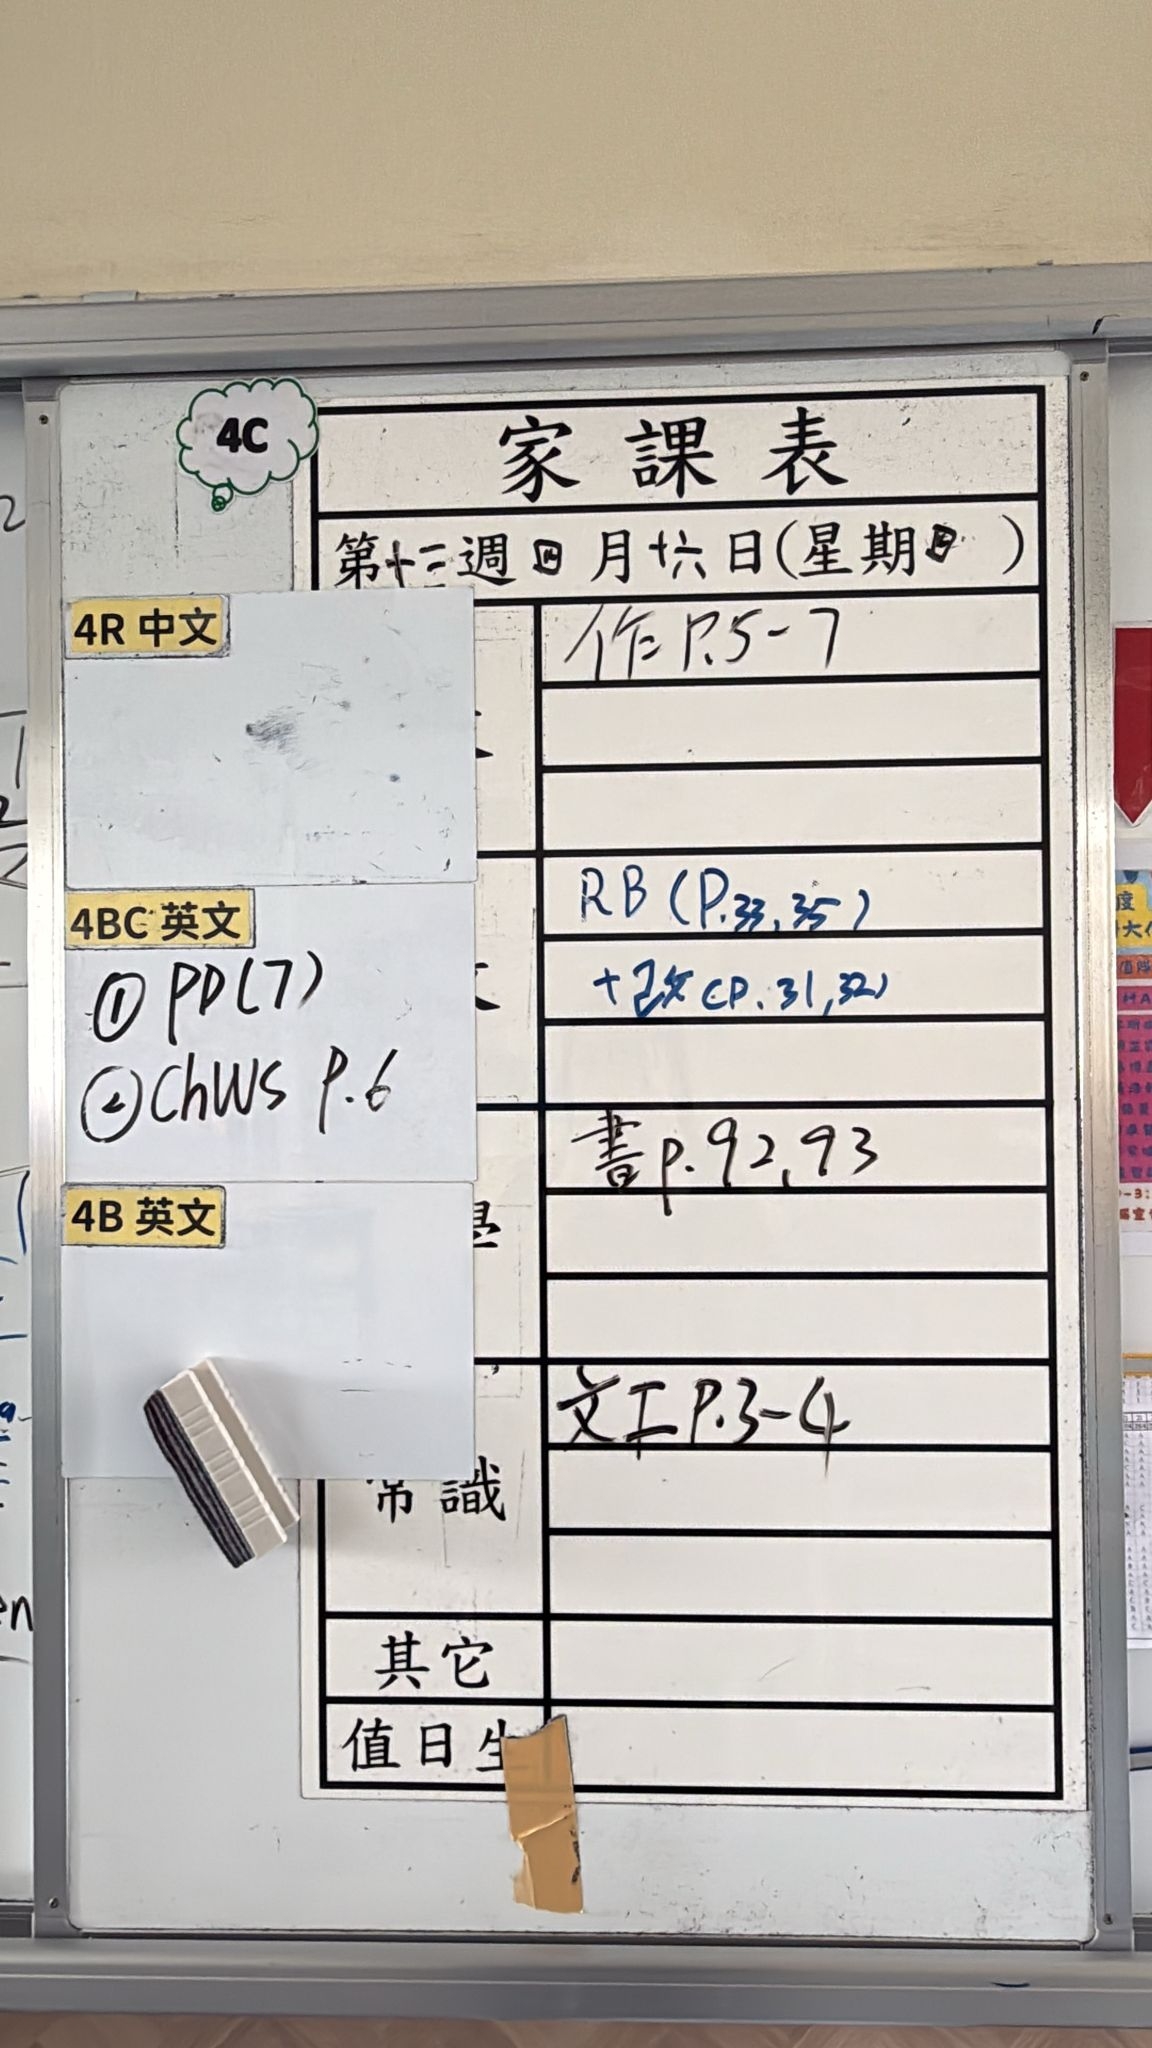 4C
家課表
第十二週四月十六日(星期四)
4R 中文
作P.5-7
4BC 英文
① PD(7)
② ChWS P.6
RB (P.33,35)
+改(P.31,32)
4B 英文
書p.92,93
文工P.3-4
常識
其它
值日生